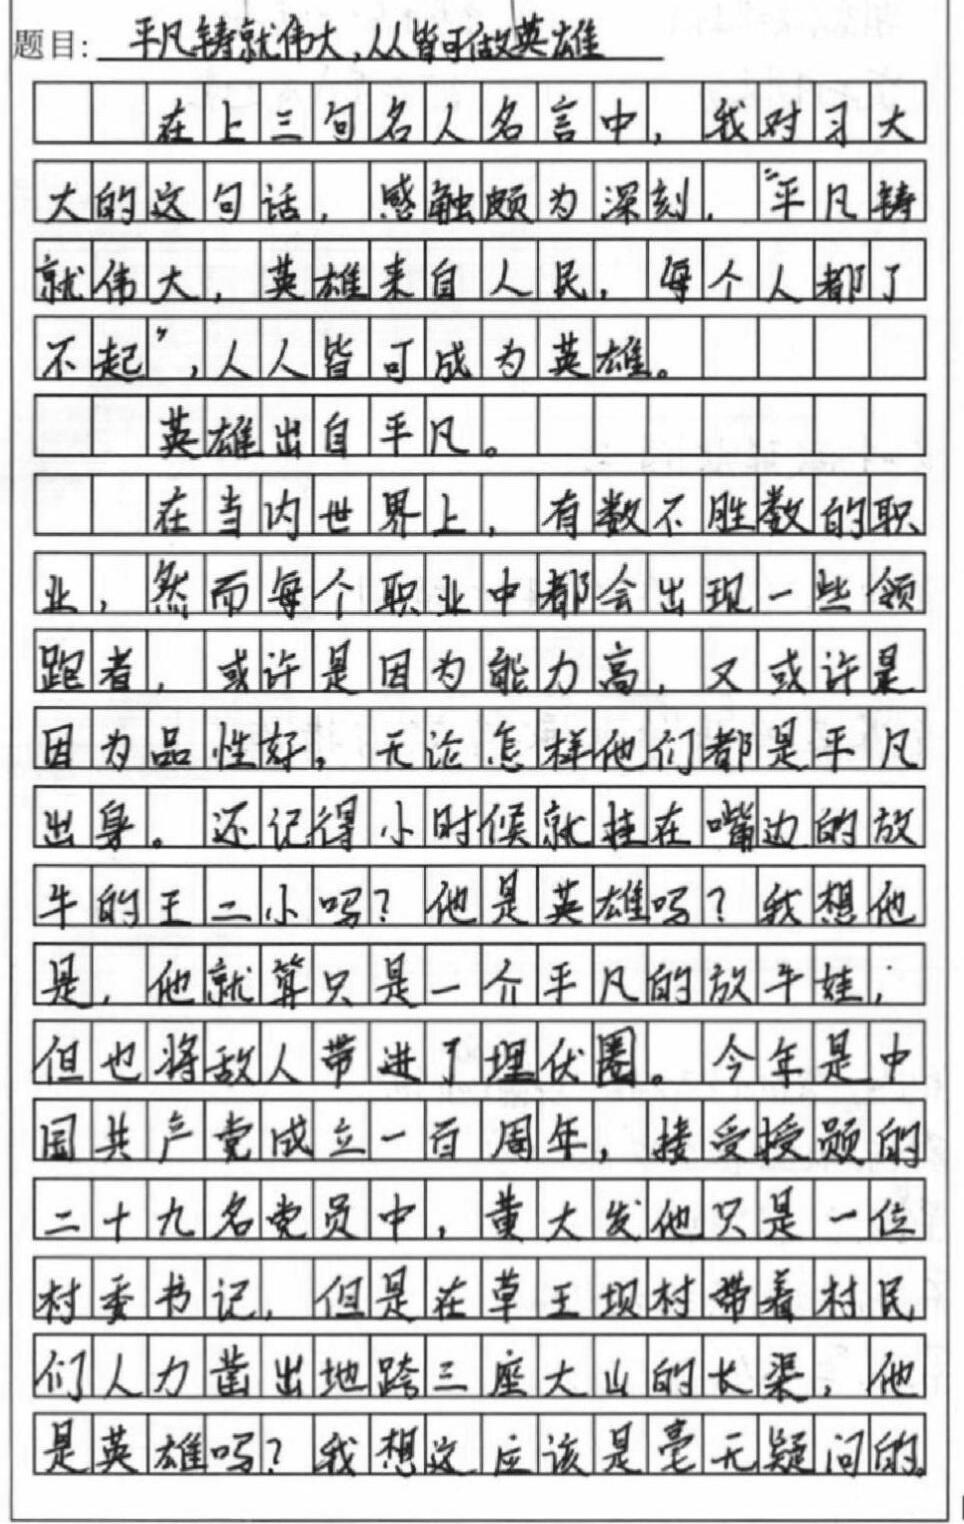 题目: 平凡铸就伟大,人人皆可做英雄
在上三句名人名言中，我对习大
大的这句话，感触颇为深刻，“平凡铸
就伟大，英雄来自人民，每个人都了
不起”，人人皆可成为英雄。
英雄出自平凡。
在当内世界上，有数不胜数的职
业，然而每个职业中都会出现一些领
跑者，或许是因为能力高，又或许是
因为品性好，无论怎样他们都是平凡
出身。还记得小时候就挂在嘴边的放
牛的王二小吗？他是英雄吗？我想他
是，他就算只是一个平凡的放牛娃，
但也将敌人带进了埋伏圈。今年是中
国共产党成立一百周年，接受授颁的
二十九名党员中，黄大发他只是一位
村委书记，但是在草王坝村带着村民
们人力凿出地跨三座大山的长渠，他
是英雄吗？我想这应该是毫无疑问的。